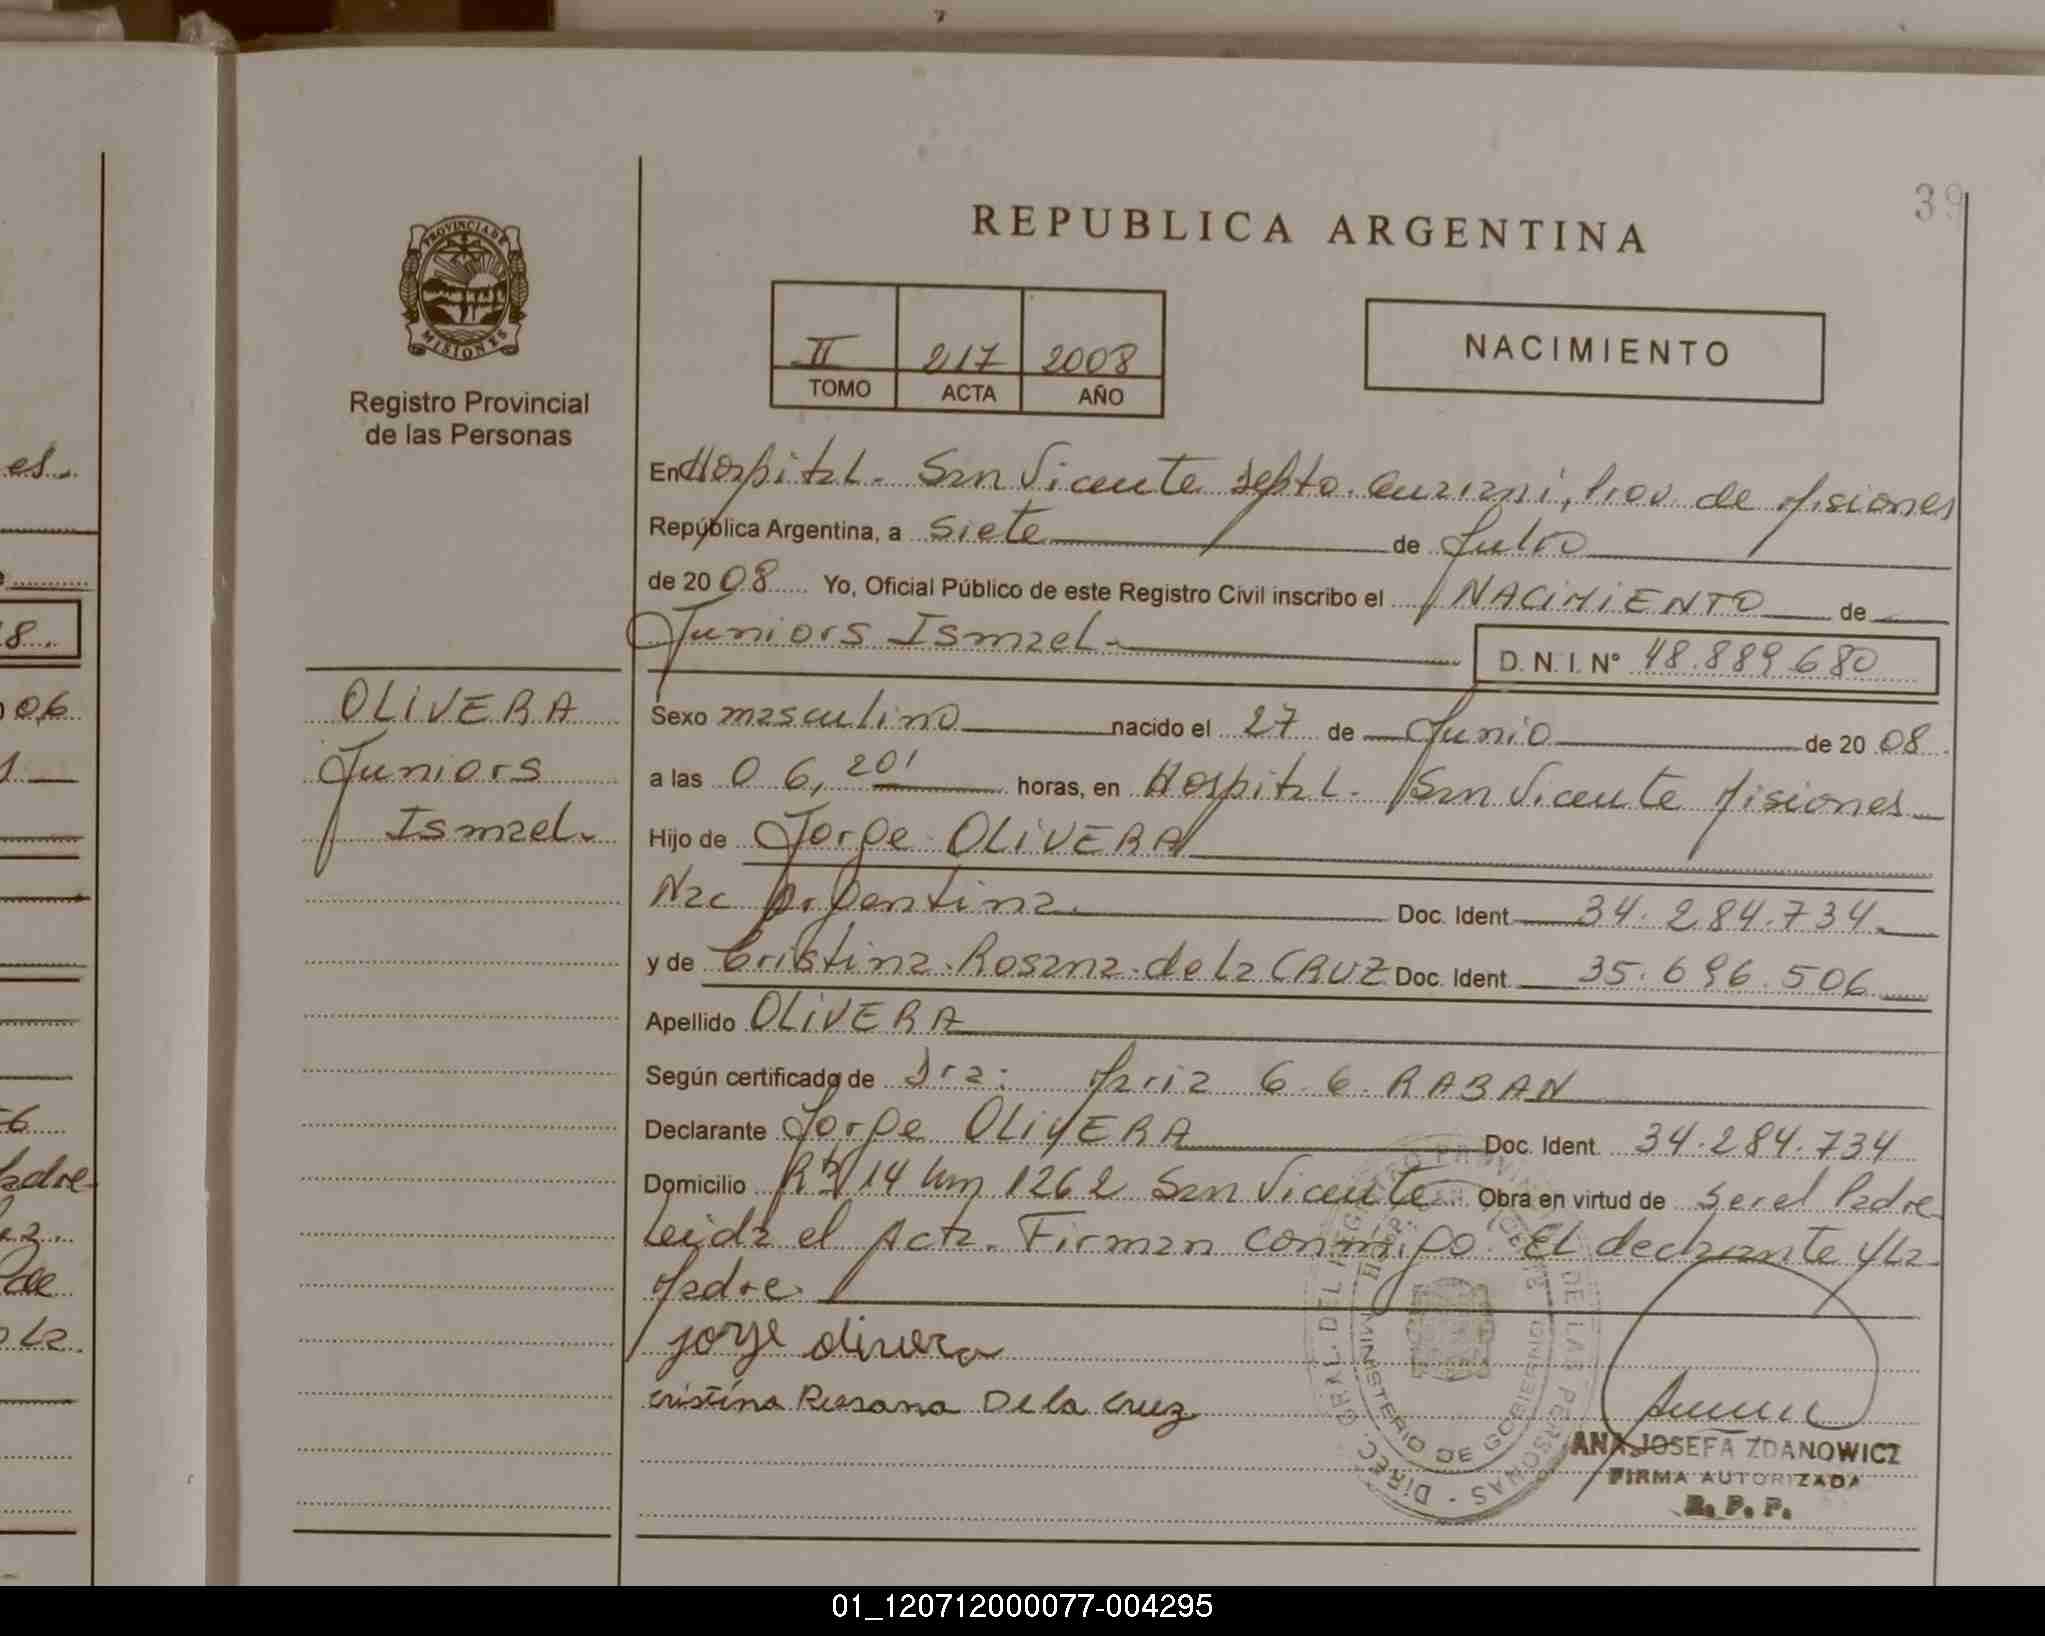 39
REPUBLICA ARGENTINA
PROVINCIA DE
MISIONES
Registro Provincial
de las Personas
II 217 2008
TOMO ACTA AÑO
NACIMIENTO
En Hospital. San Vicente Depto. Guarani, Prov. de Misiones
República Argentina, a Siete de Julio
de 2008 Yo, Oficial Público de este Registro Civil inscribo el NACIMIENTO de
Juniors Ismael.
D. N. I. Nº 48.889.680
OLIVERA
Juniors
Ismael.
Sexo masculino nacido el 27 de Junio de 2008
a las 06,20' horas, en Hospital. San Vicente Misiones
Hijo de Jorge OLIVERA
Nac Argentina. Doc. Ident. 34.284.734.
y de Cristina Rosana de la CRUZ Doc. Ident. 35.696.506
Apellido OLIVERA
Según certificado de Dra: Maria G. G. RABAN
Declarante Jorge OLIVERA Doc. Ident. 34.284.734
Domicilio Rta 14 km 1262 San Vicente Obra en virtud de Ser el Padre
Leida el Acta. Firman conmigo. El declarante y la
Madre.
jorge olivera
cristina Rosana De la cruz
DIREC. GRAL. DEL DE LAS PERSONAS
MINISTERIO DE GOBIERNO
ANA JOSEFA ZDANOWICZ
FIRMA AUTORIZADA
R. P. P.
es.
8.
06
6
adre
de
La.
01_120712000077-004295